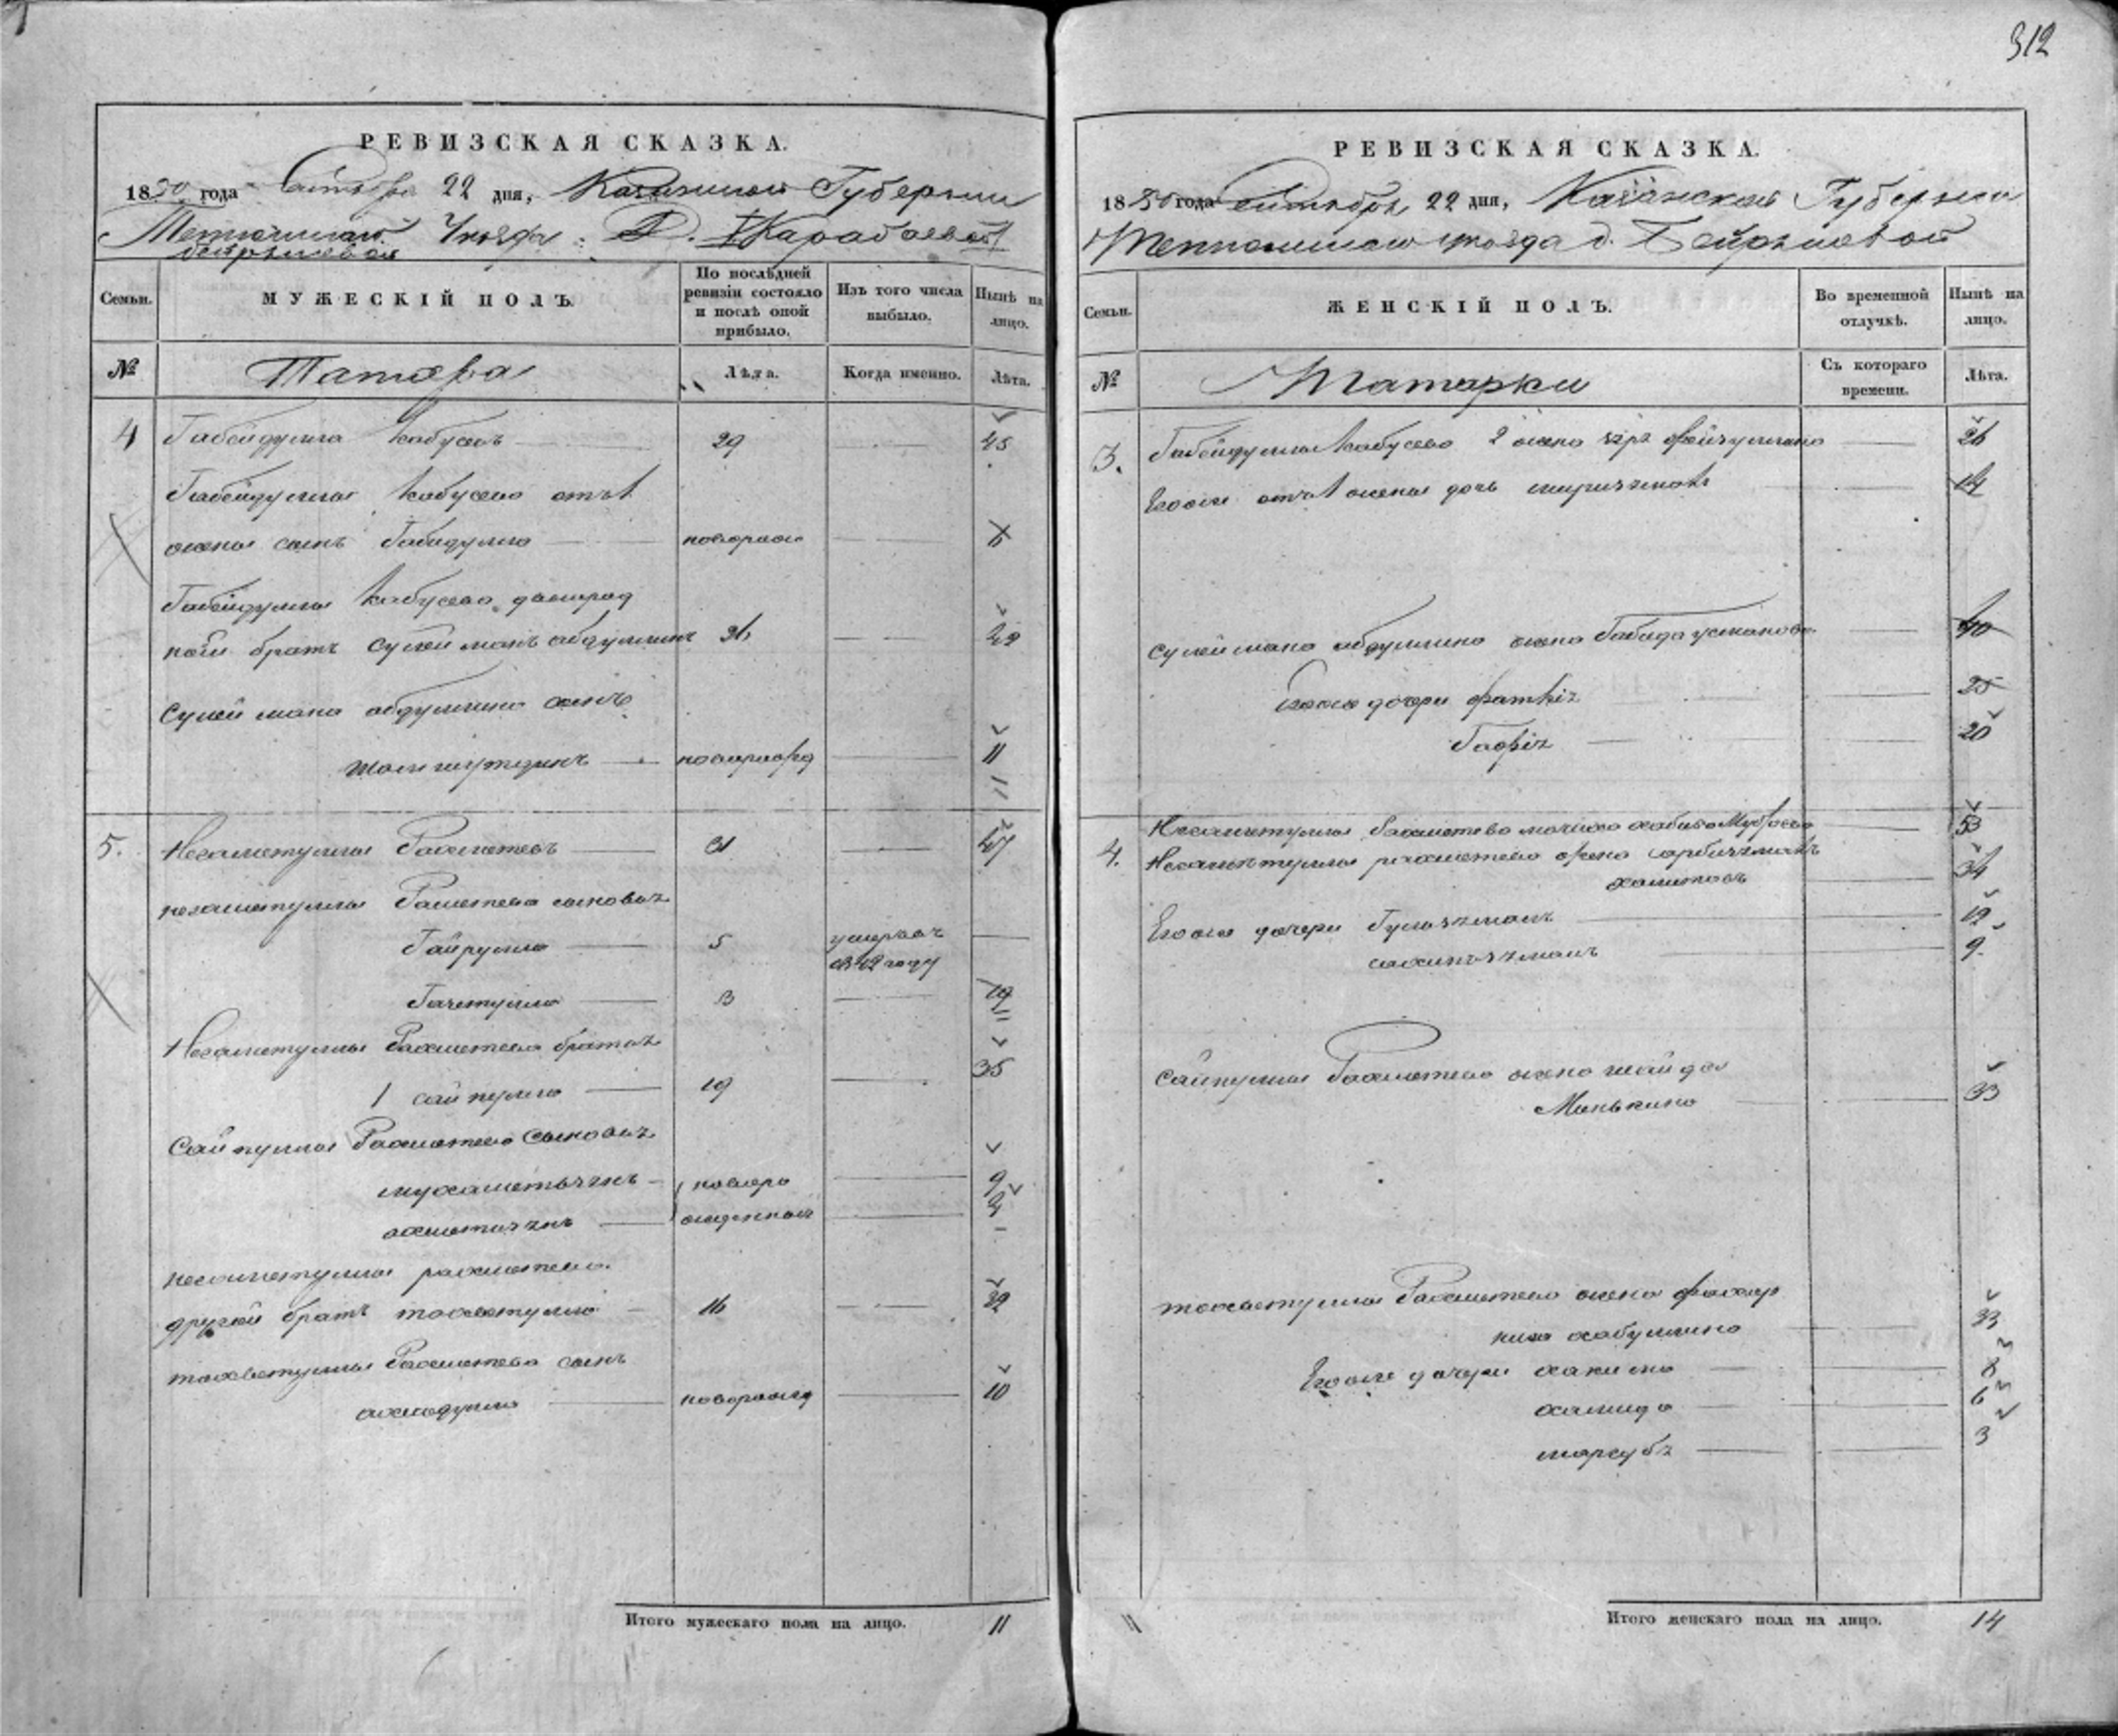 312
РЕВИЗСКАЯ СКАЗКА.
1850 года Октября 22 дня, Казанской Губернии
Тетюшскаго Уезда Д. Карабаевой
Бейрышевой
Семьи. МУЖЕСКІЙ ПОЛЪ. По послѣдней ревизіи состояло и послѣ оной прибыло. Изъ того числа выбыло. Нынѣ на лицо.
№ Татара Лѣта. Когда именно. Лѣта.
4 Габейдулла Кабусовъ 29 45
Габейдуллы Кабусова отъ 1
жены сынъ Габидулла новорож
Габейдуллы Кабусова двоирод
ной братъ Сулейманъ Абдуллинъ 26 42
Сулеймана Абдуллина сынъ
новорожд 11
5. Незаметулла Рахметевъ 31 47
Незаметуллы Рахметева сыновья
Гайрулла 5 умеръ въ
42 году
Гачетулла 3 19
Незаметуллы Рахметева братья
1 Сайпулла 19 35
Сайпуллы Рахметева сыновья
Мухаметьзянъ новоро 9
Ахметьзянъ жденной
Незаметуллы Рахметева
другой братъ Тохветулла 16 32
Тохветуллы Рахметева сынъ
Ахмадулла новорожд 10
Итого мужескаго пола на лицо. 11
РЕВИЗСКАЯ СКАЗКА.
1850 года Октября 22 дня, Казанской Губернии
Тетюшскаго уезда д. Бейрышевой
Семьи. ЖЕНСКІЙ ПОЛЪ. Во временной отлучкѣ. Нынѣ на лицо.
№ Татарки Съ котораго времени. Лѣта.
3. Габейдуллы Кабусова 2 жена Фейзуллина 26
Егоже отъ 1 жены дочь 14
Сулеймана Абдуллина жена Габида Усманова 40
Егоже дочери Фаткія 25
Гафія 20
4. Незаметуллы Рахметева мачиха Хабиба 53
Незаметуллы Рахметева жена 34
Хамитова
Егоже дочери Гульзяманъ 12
9
Сайпуллы Рахметева жена Шайда
Минькина 33
Тохветуллы Рахметева жена Фахер
ниса Хабуллина 33
Егоже дочери Хакима 8
Хамида 6
Марзубя 3
11 Итого женскаго пола на лицо. 14